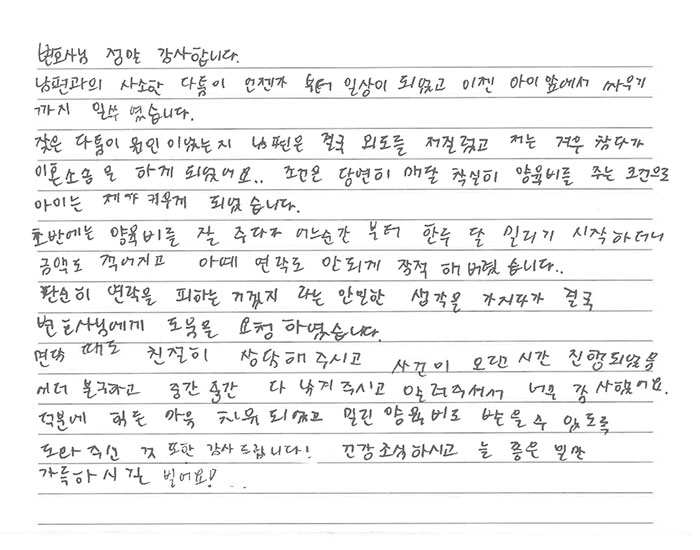 변호사님 정말 감사합니다.
남편과의 사소한 다툼이 언젠가 부터 일상이 되었고 이젠 아이 앞에서 싸우기
까지 일쑤 였습니다.
잦은 다툼이 원인 이었는지 남편은 결국 외도를 저질렀고 저는 겨우 참다가
이혼소송을 하게 되었어요.. 조건은 당연히 매달 착실히 양육비를 주는 조건으로
아이는 제가 키우게 되었습니다.
초반에는 양육비를 잘 주다가 어느순간 부터 한두 달 밀리기 시작하더니
금액도 적어지고 아예 연락도 안되게 잠적 해버렸습니다..
단순히 연락을 피하는 거겠지 라는 안일한 생각을 가지다가 결국
변호사님에게 도움을 요청 하였습니다.
면담 때도 친절히 상담해주시고 사건이 오랜 시간 진행되었음
에도 불구하고 중간 중간 다 챙겨주시고 알려주셔서 너무 감사했어요.
덕분에 힘든 마음 치유 되었고 밀린 양육비도 받을 수 있도록
도와주신 것 또한 감사 드립니다! 건강조심하시고 늘 좋은 일만
가득하시길 빌어요!